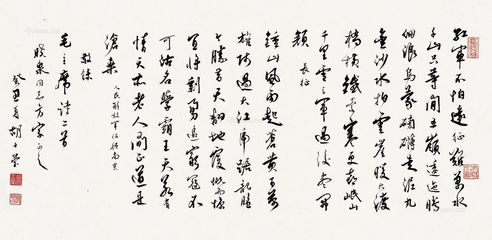 紅軍不怕遠征難萬水
千山只等閒五嶺逶迤騰
細浪烏蒙磅礴走泥丸
金沙水拍雲崖暖大渡
橋橫鐵索寒更喜岷山
千里雪三軍過後盡開
顏 長征
鍾山風雨起蒼黃百萬
雄師過大江虎踞龍盤
今勝昔天翻地覆慨而慷
宜將剩勇追窮寇不
可沽名學霸王天若有
情天亦老人間正道是
滄桑 人民解放軍佔領南京
敬錄
毛主席詩二首
映泉同志方家正之
癸丑夏胡士瑩